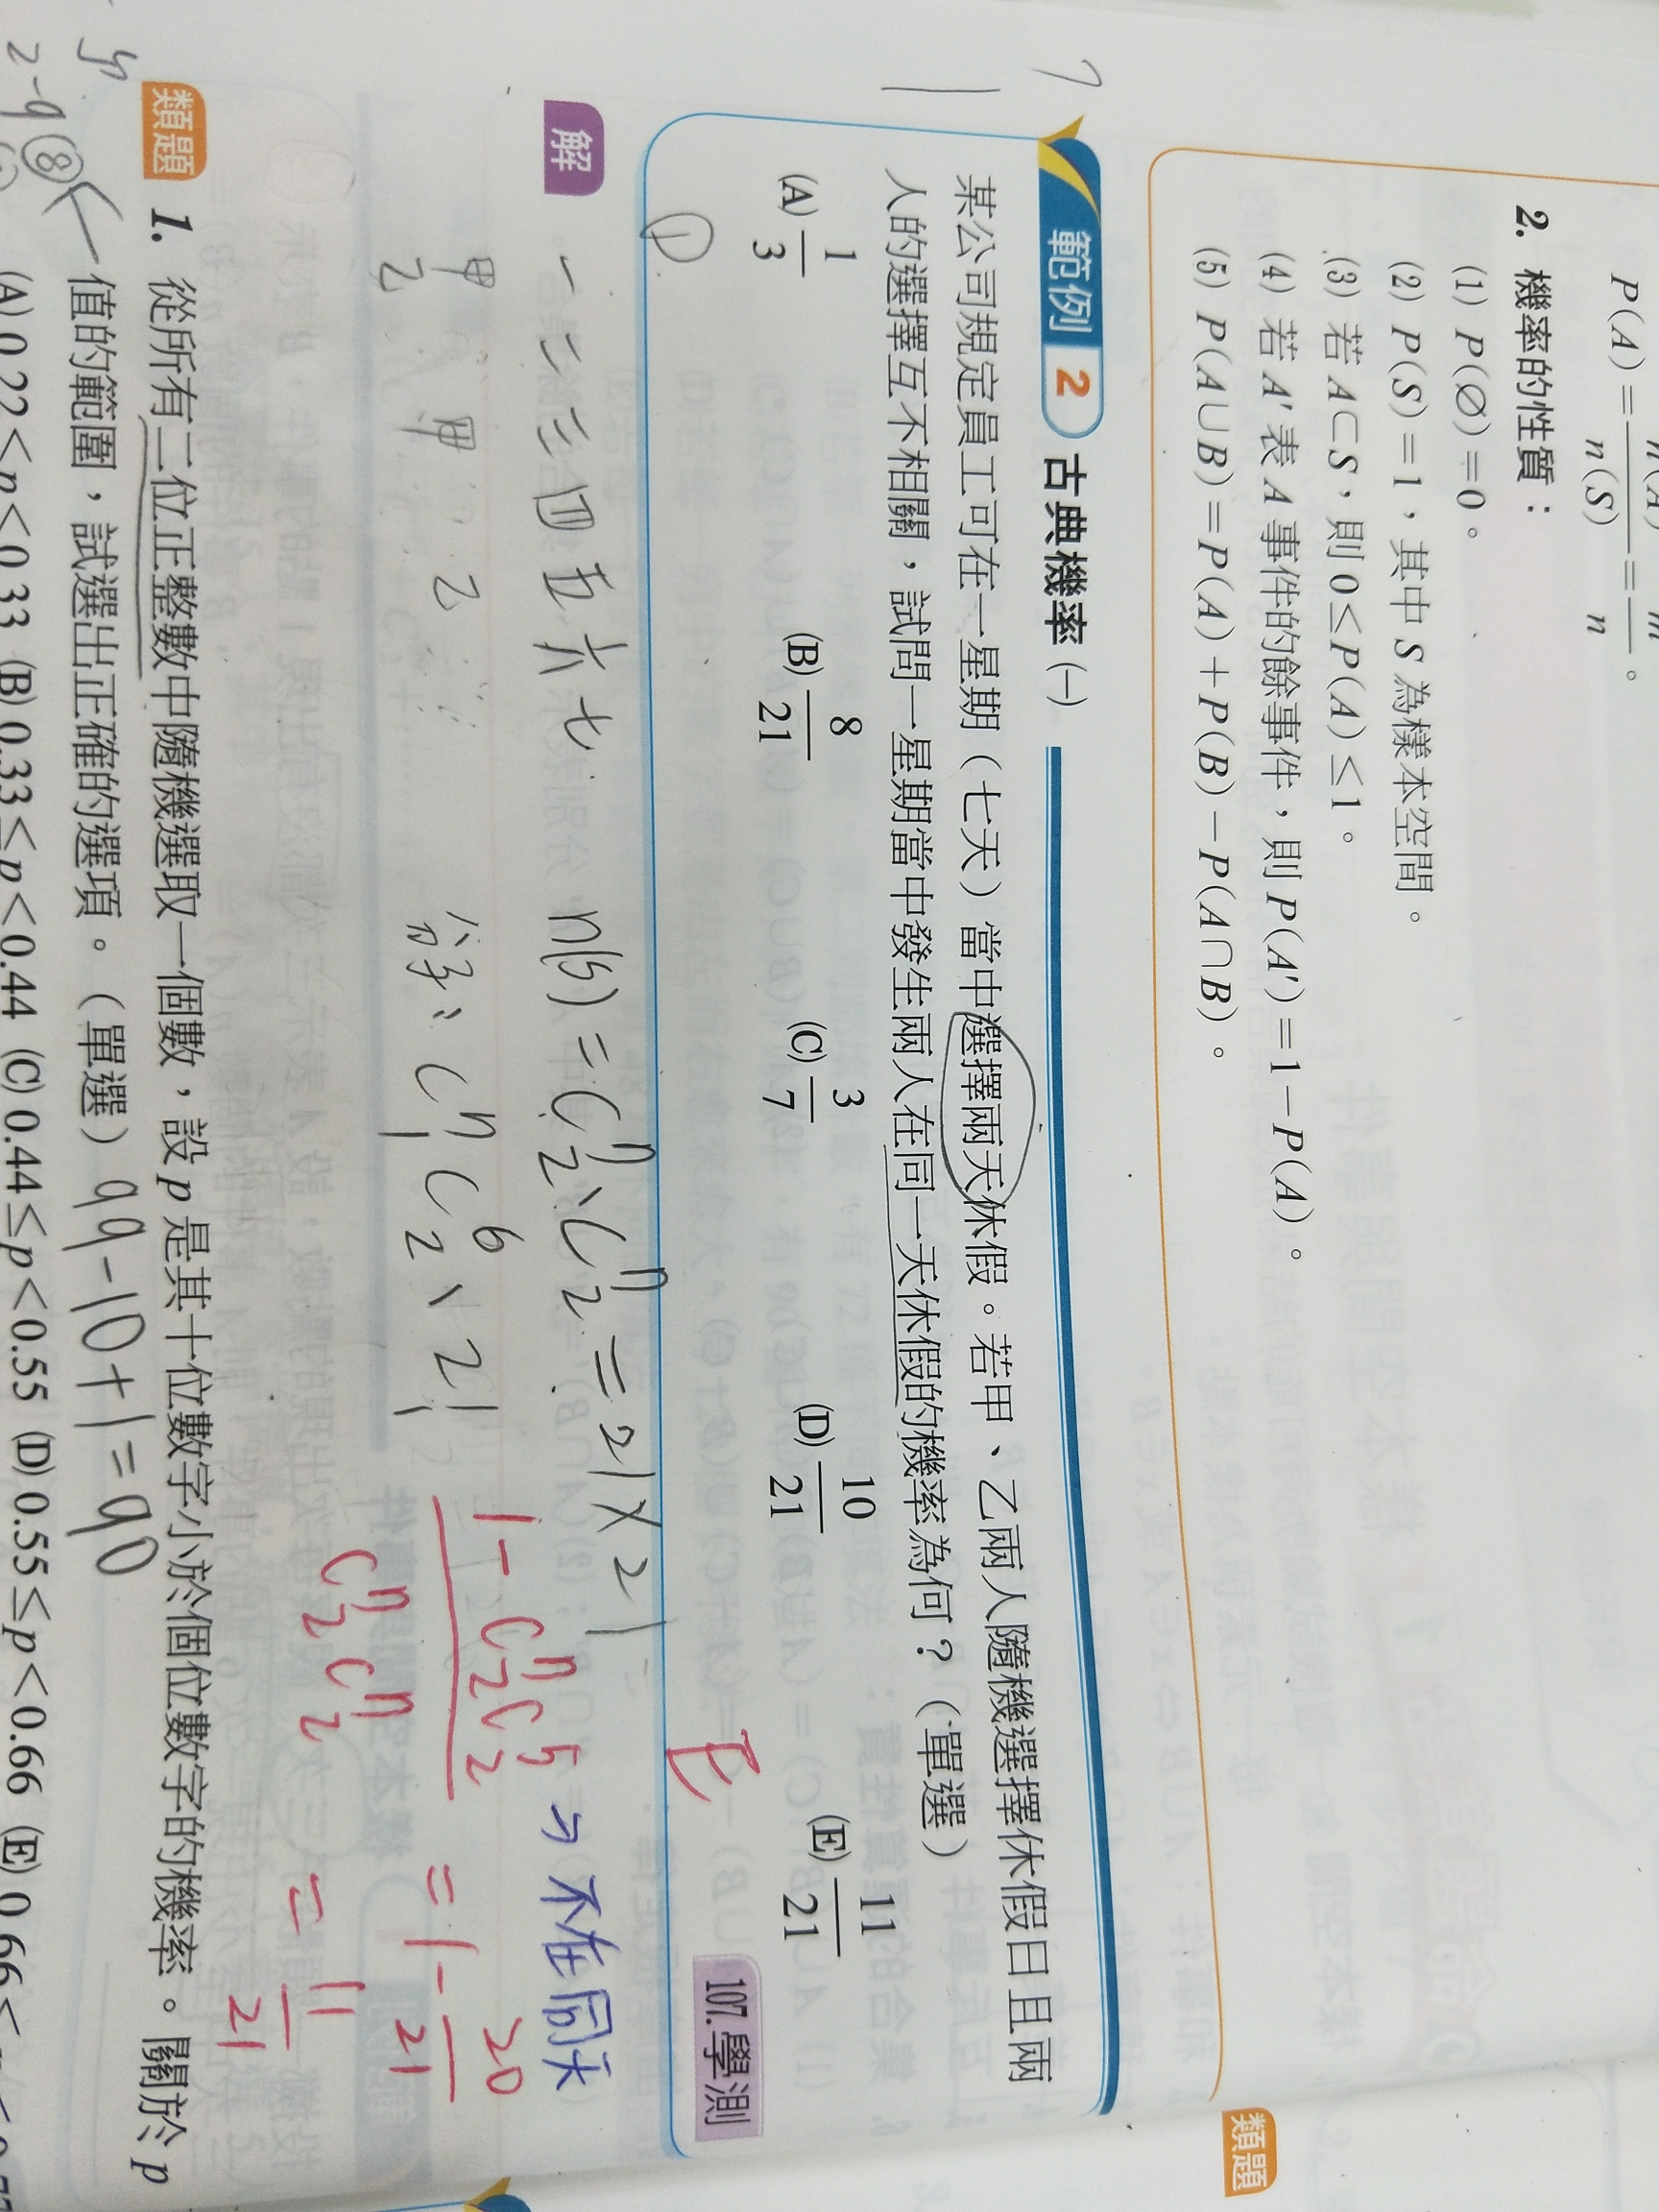 P(A)=n(A)/n(S)=m/n。
2. 機率的性質：
(1) P(∅)=0。
(2) P(S)=1，其中 S 為樣本空間。
(3) 若 A⊂S，則 0≤P(A)≤1。
(4) 若 A′表 A 事件的餘事件，則 P(A′)=1−P(A)。
(5) P(A∪B)=P(A)+P(B)−P(A∩B)。
類題
範例 2 古典機率(一)
某公司規定員工可在一星期（七天）當中選擇兩天休假。若甲、乙兩人隨機選擇休假日且兩
人的選擇互不相關，試問一星期當中發生兩人在同一天休假的機率為何？（單選）
(A) 1/3 (B) 8/21 (C) 3/7 (D) 10/21 (E) 11/21
E
107.學測
解
一 二 三 四 五 六 七 n(S)=C⁷₂、C⁷₂=21×21
甲 甲 乙
乙
分子: C⁷₁ C⁶₂、2!
1−C⁷₂C⁵₂ → 不在同天
C⁷₂C⁷₂
=1−20/21
=11/21
類題
1. 從所有二位正整數中隨機選取一個數，設 p 是其十位數字小於個位數字的機率。關於 p
值的範圍，試選出正確的選項。（單選） 99−10+1=90
2-9 ⑧
(A) 0.22<p<0.33 (B) 0.33≤p<0.44 (C) 0.44≤p<0.55 (D) 0.55≤p<0.66 (E) 0.66≤